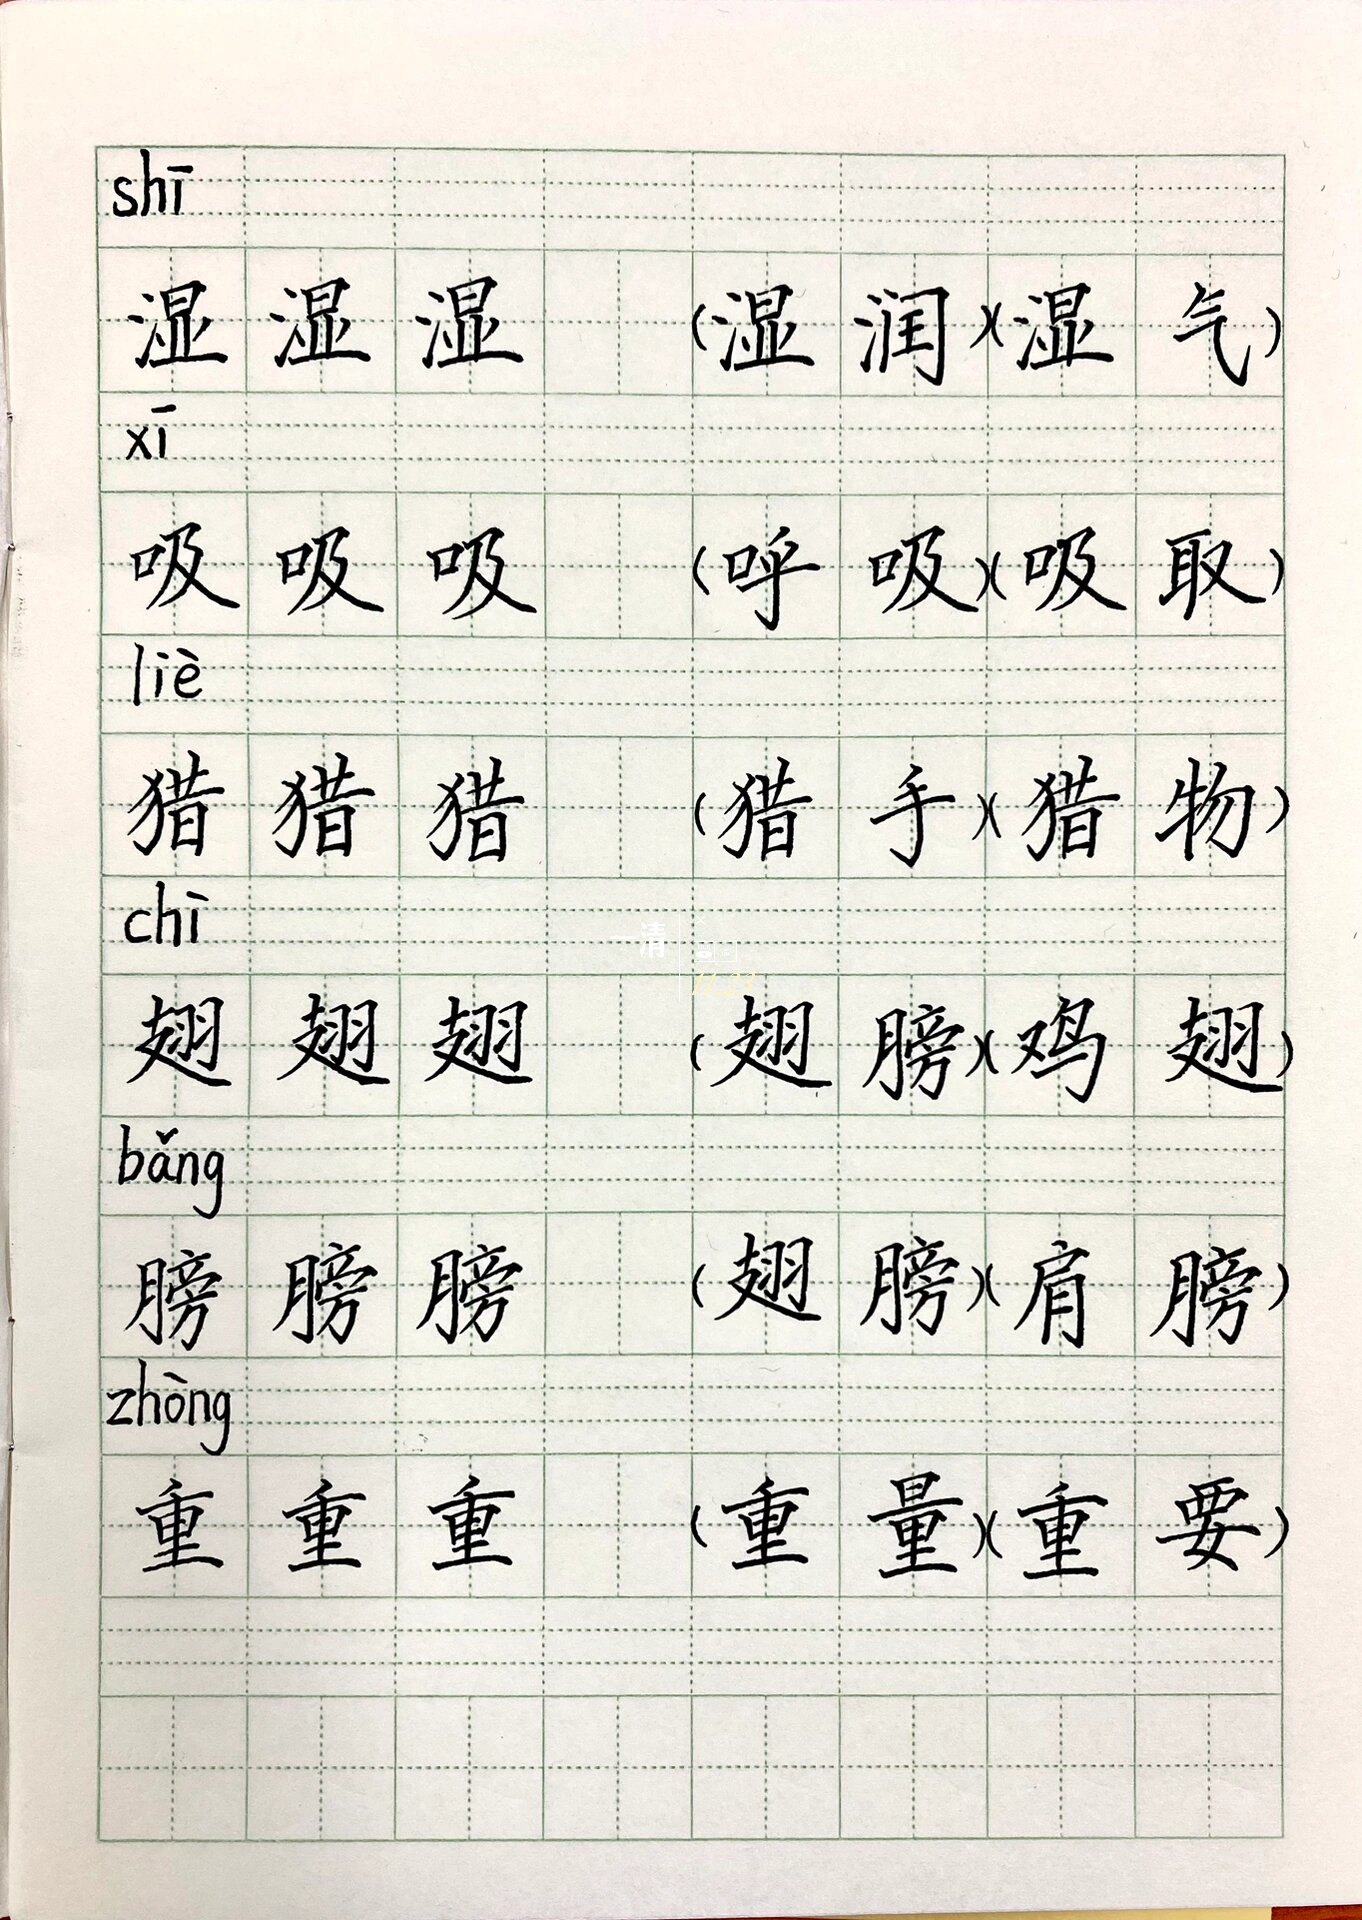 shī
湿 湿 湿 (湿润)(湿气)
xī
吸 吸 吸 (呼吸)(吸取)
liè
猎 猎 猎 (猎手)(猎物)
chì
翅 翅 翅 (翅膀)(鸡翅)
bǎng
膀 膀 膀 (翅膀)(肩膀)
zhòng
重 重 重 (重量)(重要)